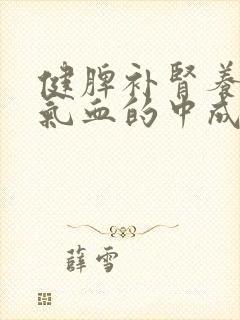 健脾补腎養
氣血的中成
薛雪